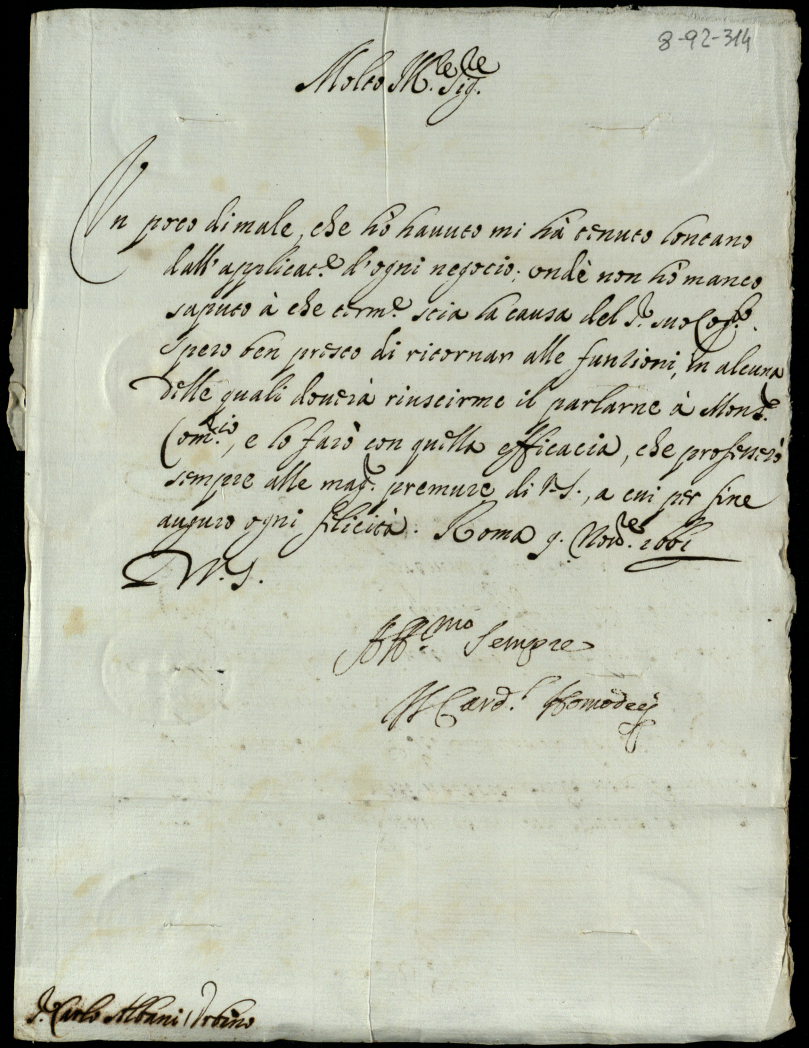 8-92-314
Molto Ill.re Sig.re
Un poco di male, che hò hauuto mi hà tenuto lontano
dall'applicat.e d'ogni negocio; ondè non hò manco
saputo à che term.e scia la causa del S.r suo Cog.to.
Spero ben presto di ritornar alle funtioni, in alcuna
delle quali douerà riuscirme il parlarne à Mons.r
Com.rio, e lo farò con quella efficacia, che professerò
sempre alle mag.ri premure di V.S., a cui per fine
auguro ogni felicità. Roma 9. Nou.re 1661
V.S.
Aff.mo sempre
Il Card.l Homodei
S.r Carlo Albani Urbino